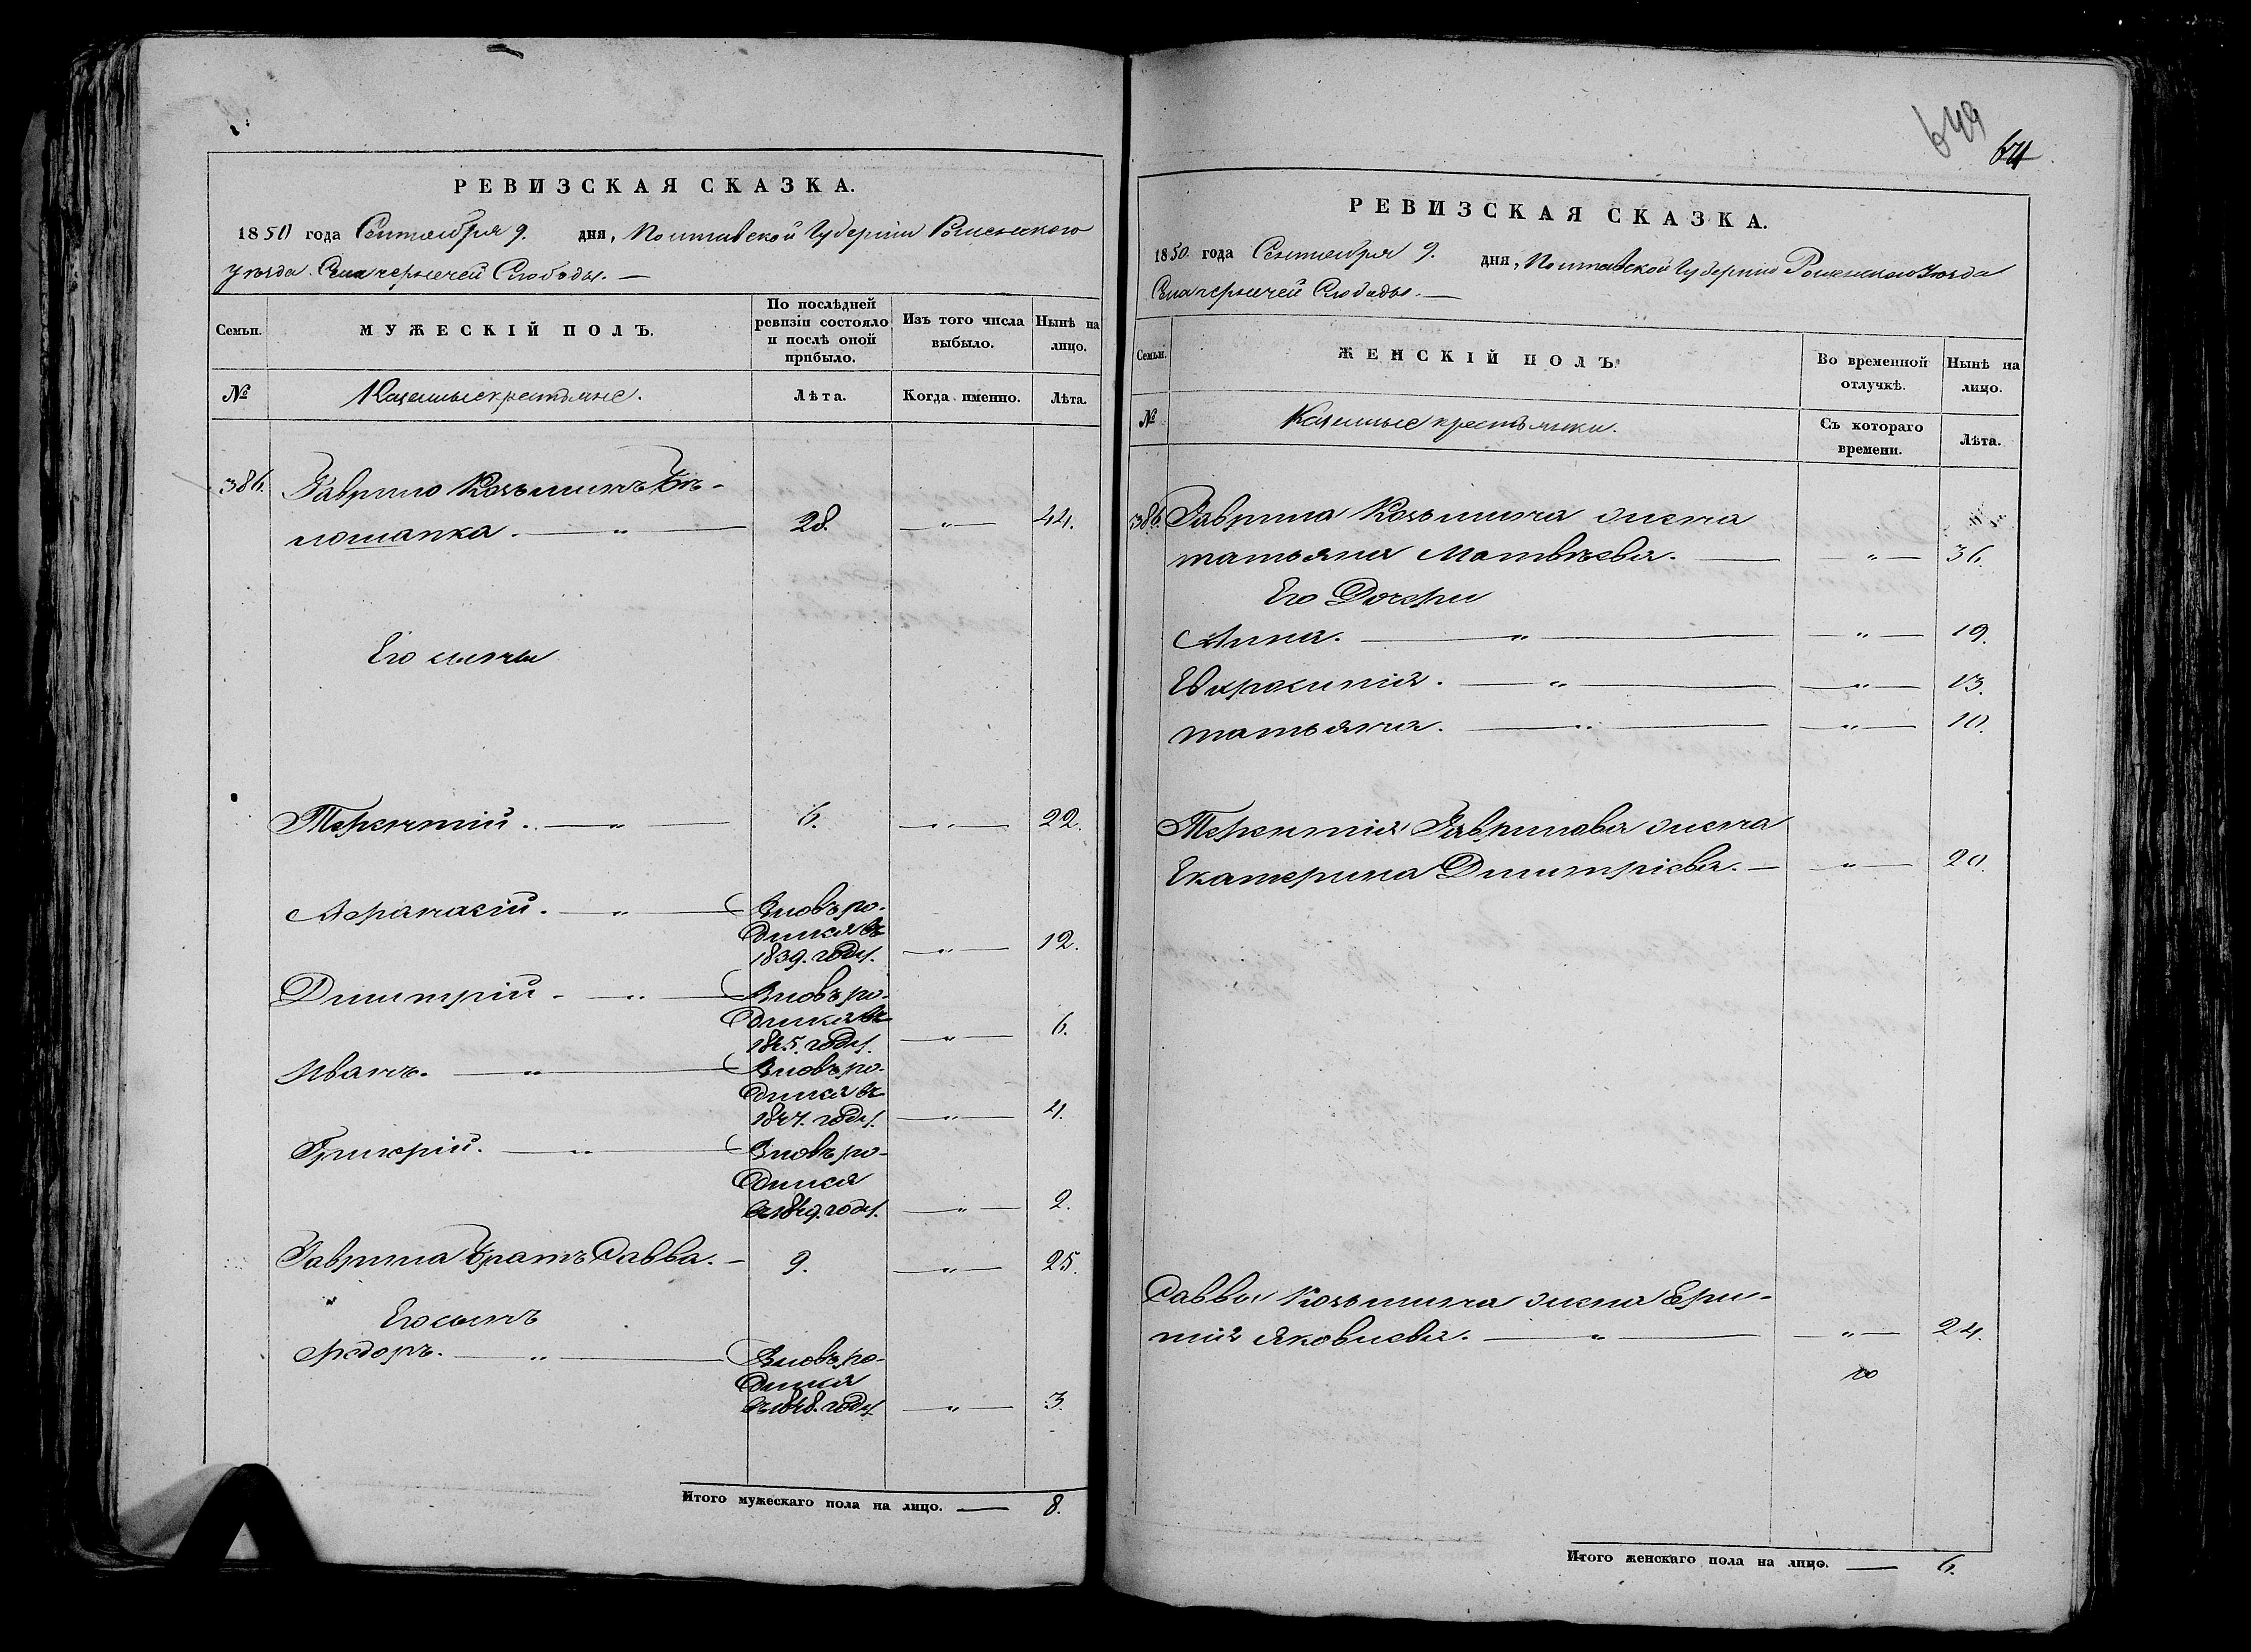 РЕВИЗСКАЯ СКАЗКА.
1850 года Сентября 9. дня, Полтавской Губернии Роменского
уезда Села чернечей Слободы. —
Семьи.
МУЖЕСКІЙ ПОЛЪ.
По послѣдней
ревизіи состояло
и послѣ оной
прибыло.
Изъ того числа
выбыло.
Нынѣ на
лицо.
№
Казенные крестьяне.
Лѣта.
Когда именно.
Лѣта.
386. Гаврило Козьминъ Бѣ-
лошапка. — " — 28. — " — 44.
Его сыны
Терентій. — " — 6. — " — 22.
Афанасій. — " — Вновь ро-
дился въ
1839. году. — " — 12.
Димитрій — " — Вновь ро-
дился въ
1845. году. — " — 6.
Иванъ. — " — Вновь ро-
дился въ
1847. году. — " — 4.
Григорій. — " — Вновь ро-
дился
въ 1849. году. — " — 2.
Гаврила братъ Савва. — 9. — " — 25.
Его сынъ
Федоръ. — " — Вновь ро-
дился
въ 1848. году. — " — 3.
Итого мужескаго пола на лицо. — 8.
649
РЕВИЗСКАЯ СКАЗКА.
1850 года Сентября 9. дня, Полтавской Губернии Роменского Уезда
Села чернечей Слободы. —
Семьи.
ЖЕНСКІЙ ПОЛЪ.
Во временной
отлучкѣ.
Нынѣ на
лицо.
№
Казенные крестьянки.
Съ котораго
времени.
Лѣта.
386. Гаврила Козьмина жена
татьяна Матвѣева. — " — 36.
Его Дочери
Анна. — " — " — 19.
Евфросинія. — " — " — 13.
татьяна. — " — " — 10.
Терентія Гаврилова жена
Екатерина Димитріева. — " — 20.
Саввы Козьмина жена Ери-
нія Яковлева. — " — " — 24.
Итого женскаго пола на лицо. — 6.